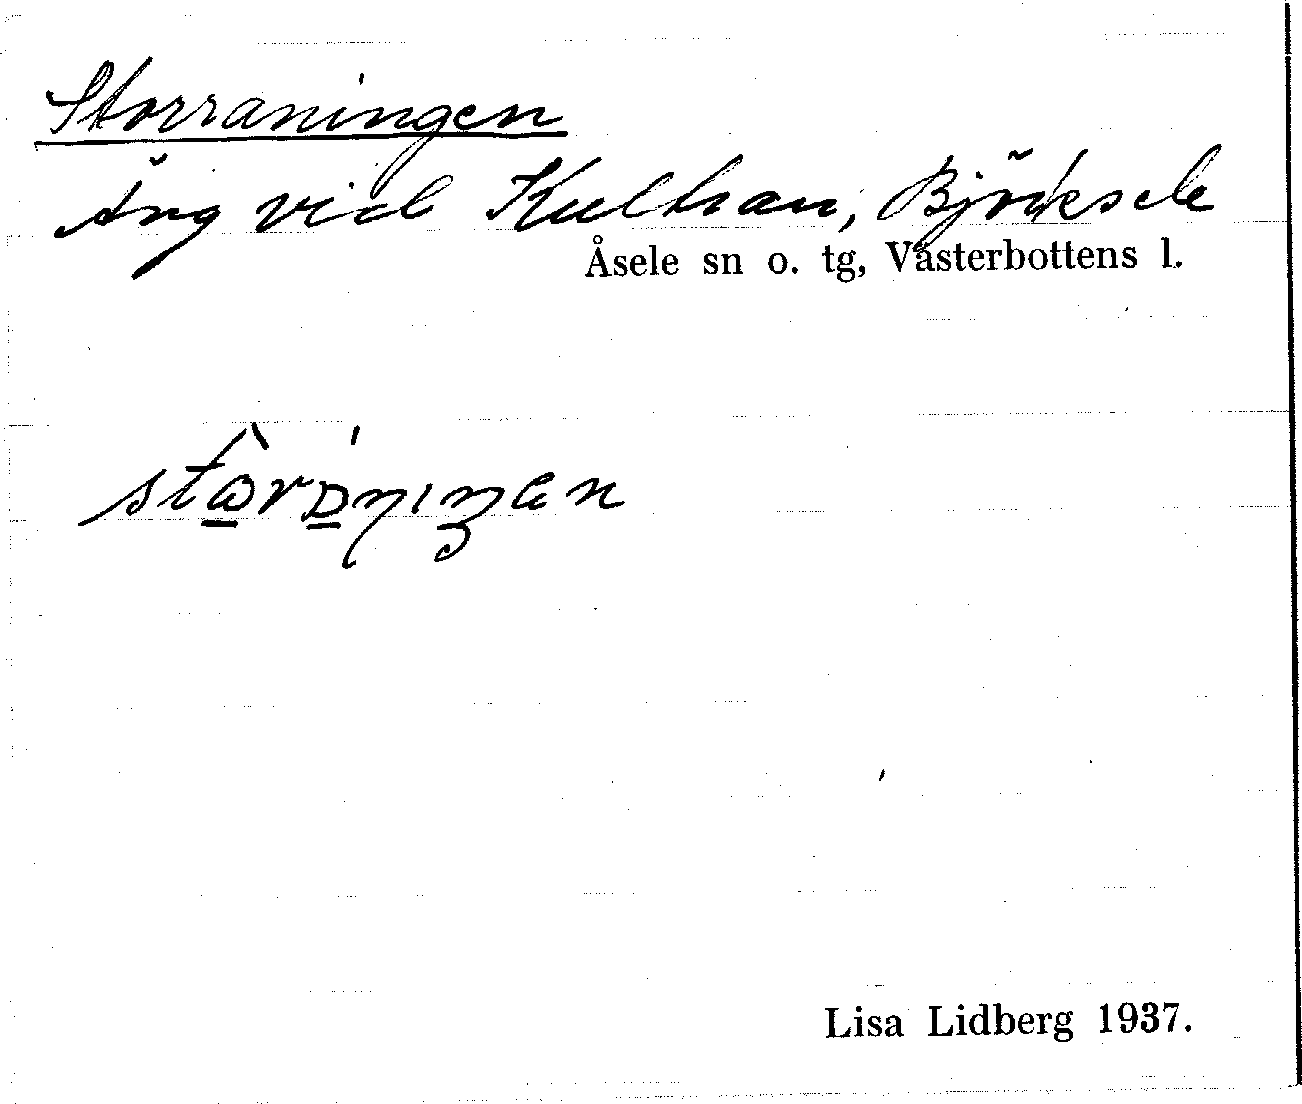 Storraningen
äng vid Kulthan, Björksele
Åsele sn o. tg, Västerbottens l.
Lisa Lidberg 1937.